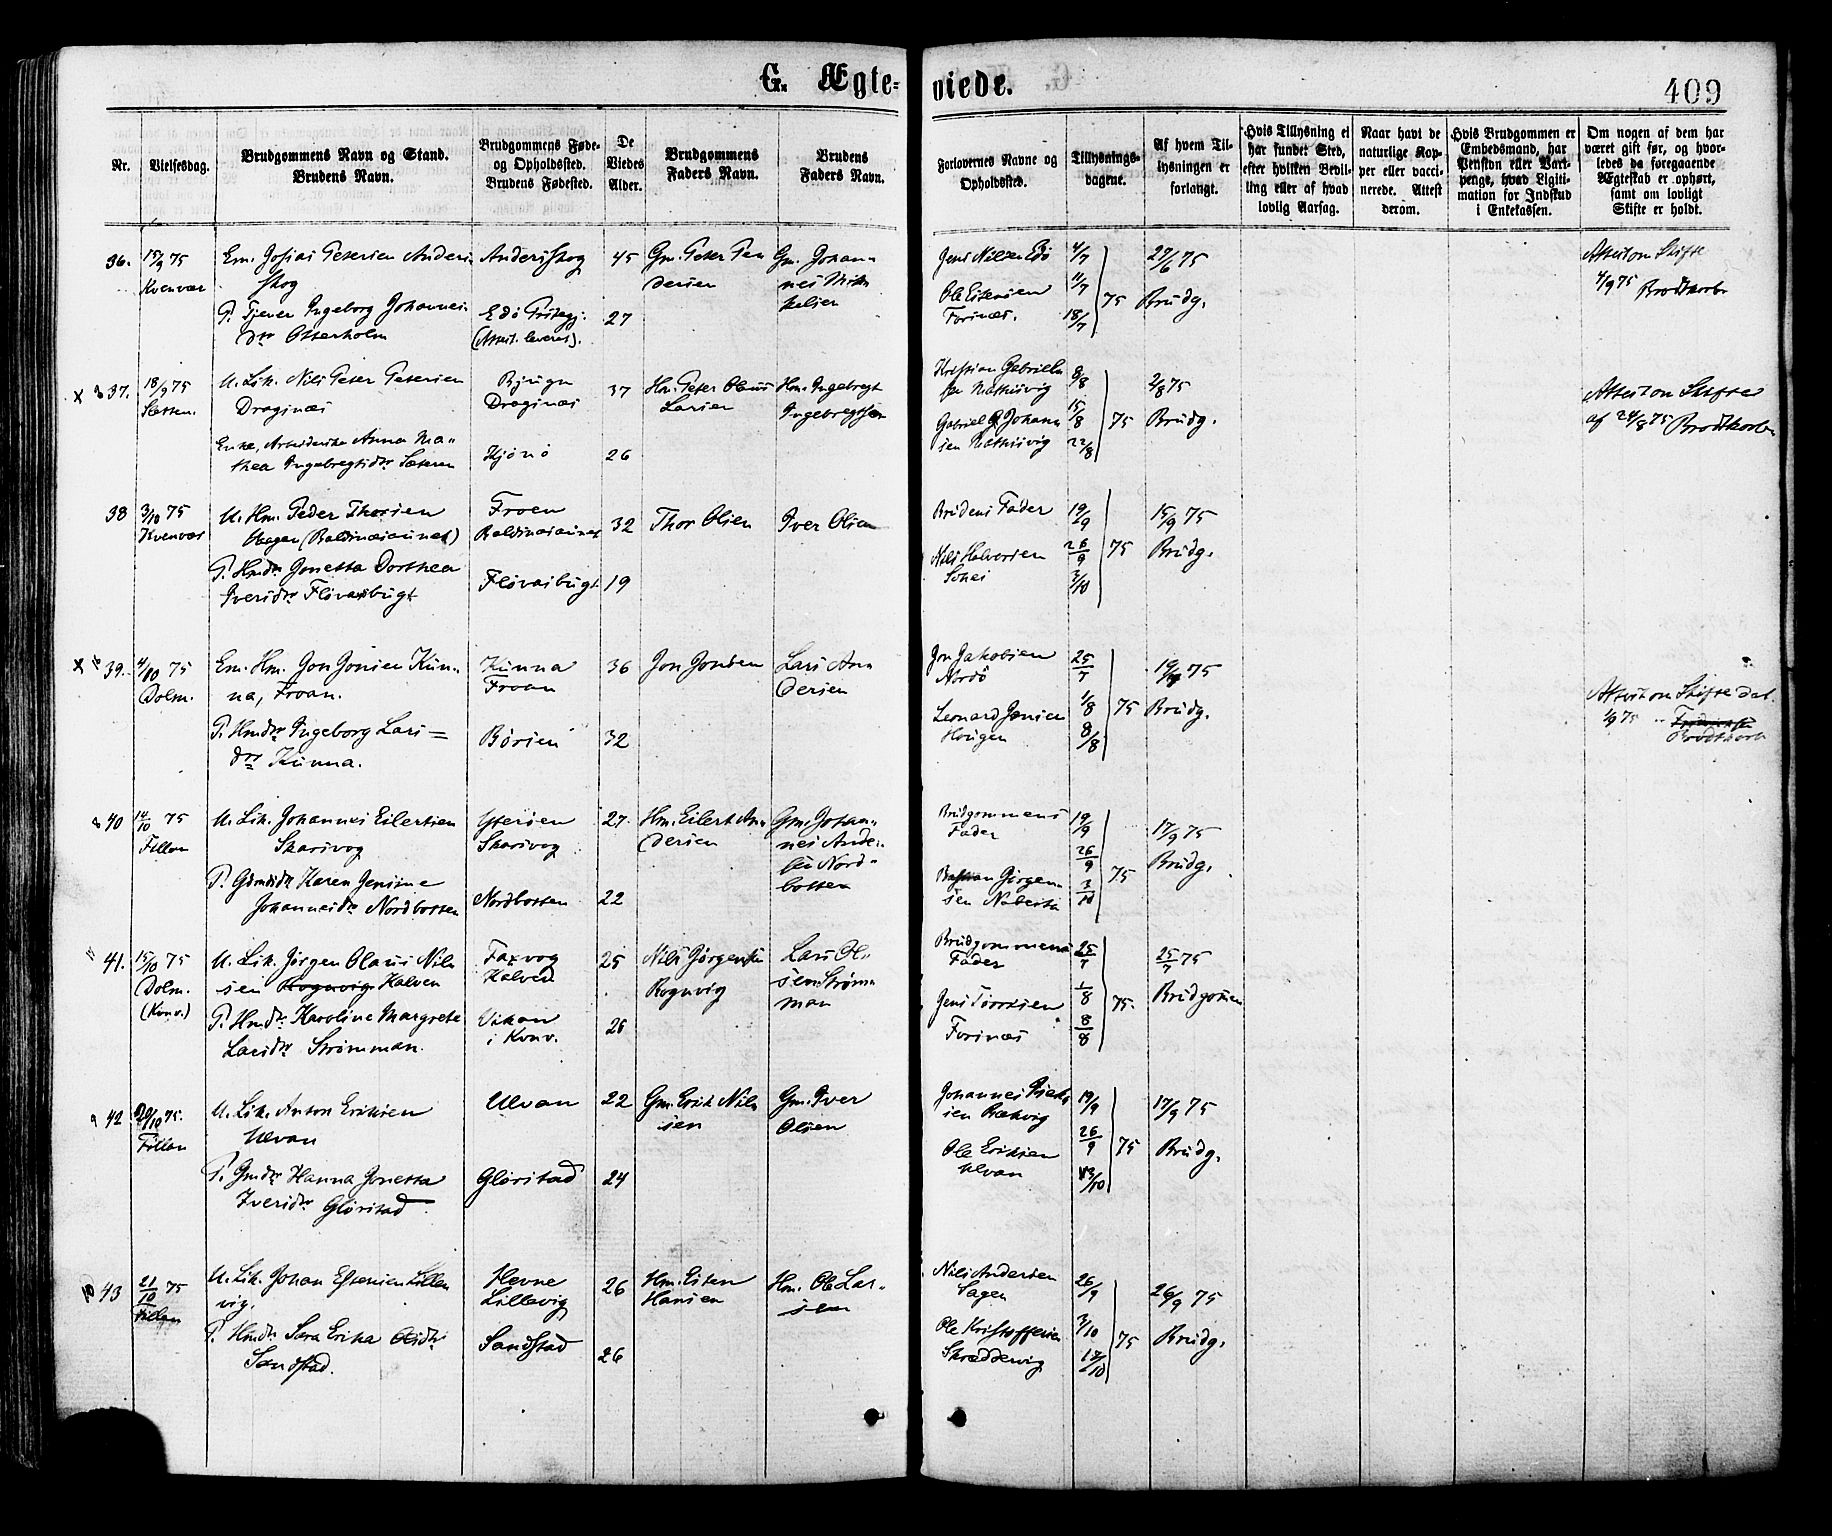 G. Ægte=
viede.
409
Nr.
Vielsesdag.
Brudgommens Navn og Stand.
Brudens Navn.
Brudgommens Føde-
og Opholdssted.
Brudens Fødested.
De
Viedes
Alder.
Brudgommens
Faders Navn.
Brudens
Faders Navn.
Forlovernes Navne og
Opholdssted.
Tillysnings-
dagene.
Af hvem Til-
lysningen er
forlangt.
Hvis Tillysning ei
har fundet Sted,
efter hvilken Bevil-
ling eller af hvad
lovlig Aarsag.
Naar havt de
naturlige Kop-
per eller vacci-
nerede. Attest
derom.
Hvis Brudgommen er
Embedsmand, har
Pension eller Vart-
penge, hvad Ligiti-
mation for Indskud
i Enkekassen.
Om nogen af dem har
været gift før, og hvor-
ledes da foregaaende
Ægteskab er ophørt,
samt om lovligt
Skifte er holdt.
36.
15/9 75
Kvenvær
Em. Josias Petersen Anders
skog
P. Tjener Ingeborg Johannes
dtr Otterholm
Andersskog
Edö Præstegj.
45
27
Gm. Peter Pe
dersen
Gm. Johan-
nes Mik
kelsen
Jens Nilsen Edö
Ole Estensen
Forsnæs.
4/7
11/7
18/7
75
27/6 75
Brudg.
Attest om Skifte
4/9 75 Brodtkorb
37.
18/9 75
U. Lik. Nils Peter Petersen
Dragsnæs
Enke, Arbeiderske Anna Ma-
thea Ingebregtsdtr Sæteren
Bjugn
Dragsnæs
Hjønø
37
26
Hm. Peter Olaus
Larsen
Hm. Ingebregt
Ingebregtsen
Kristian Gabriels
sen
Gabriel Johan
sen
8/8
15/8
22/8
75
2/8 75
Brudg.
Attest om Skifte
af 24/8 75 Brodtkorb
38
3/10 75
Kvenvær
U. Hm. Peder Thorsen
Hagen (Baldsnæsaunet)
P. Hmdtr Jonetta Dorthea
Iversdtr Fløvaisbugt
Froen
Baldsnæsaunet
Fløvaisbugt
32
19
Thor Olsen
Iver Olsen
Brudens Fader
Nils Halvorsen
19/9
26/9
3/10
75
15/9 75
Brudg.
39.
4/10 75
Dolm.
Em. Hm. Jon Jonsen Kun-
na, Froan.
P. Hmdtr Ingeborg Lars=
dtr Kunna.
Kunna
Froan
Børsen
36
32
Jon Jonsen
Lars An
dersen
Jon Jakobsen
Nordö
Leonard Jensen
Hougen
25/7
1/8
8/8
75
19/7 75
Brudg.
Attest om Skifte dat.
1/9 75
Brodtkorb
40
14/10 75
Fillan
U. Lik. Johannes Eilertsen
Skarsvog
P. Gdmdsdtr Karen Jensine
Johannesdtr Nordbotten
Yterøen
Skarsvog
Nordbotten
27
22
Hm. Eilert An-
dersen
Gm. Johan-
nes Ander-
sen Nord-
botten
Brudgommens
Fader
Bastian Jørgen-
sen
19/9
26/9
3/10
75
17/9 75
Brudg.
41.
15/10 75
Dolm.
(Kvnv.)
U. Lik. Jørgen Olaus Nil
sen Rognvig Kalven
P. Hmdtr Karoline Margrete
Larsdtr Strømman.
Faxvog
Kalven
Vikan
i Kvnv.
25
26
Nils Jørgensen
Rognvig
Lars Ol-
sen Strøm
man
Brudgommens
Fader
Jens Torrisen
Forsnæs
25/7
1/8
8/8
75.
25/7 75
Brudgommen
42
20/10 75.
Fillan
U. Lik. Anton Eriksen
Ulvan
P. Gmdtr Hanna Jonetta
Iversdtr Gloristad
Ulvan
Gloristad
22
24
Gm. Erik Nil
sen
Gm. Iver
Olsen
Johannes
sen Bækvig
Ole Eriksen
Ulvan
19/9
26/9
3/10
75
17/9 75
Brudg.
43
21/10 75
Fillan
U. Lik. Johan Estensen Lille
vig.
P. Hmdtr Sara Erika Olsdtr
Sandstad.
Hevne
Lillevig
Sandstad
26
26
Hm. Esten
Hansen
Hm. Ole Lar-
sen
Nils Andersen
Sagen
Ole Kristoffersen
Skreddervig
26/9
3/10
17/10
75
26/9 75
Brudg.